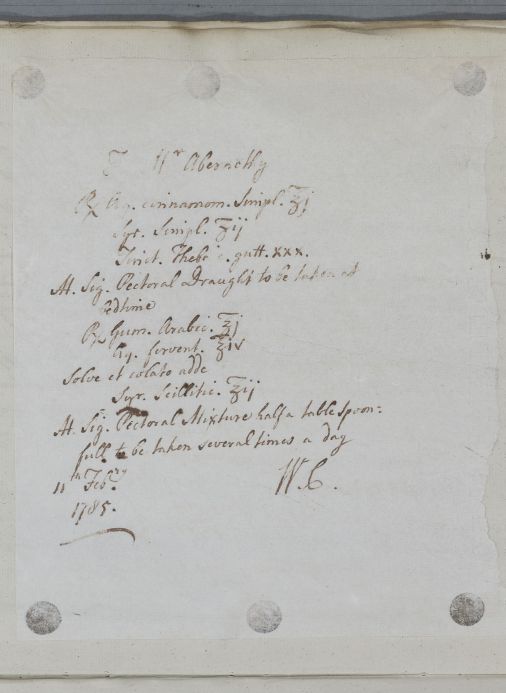 Mr Abernethy
℞ Aq. cinnamom. Simpl. ℥j
Syr. Simpl. ʒij
Tinct. Thebaic. gutt. xxx.
M. Sig. Pectoral Draught to be taken at
bedtime
℞ Gum. Arabic. ℥j
Aq. fervent. ℥iv
Solve et colato adde
Syr. Scillitic. ℥ij
M. Sig. Pectoral Mixture half a table spoon=
full to be taken several times a day
11th Febry.
1785.
W. C.